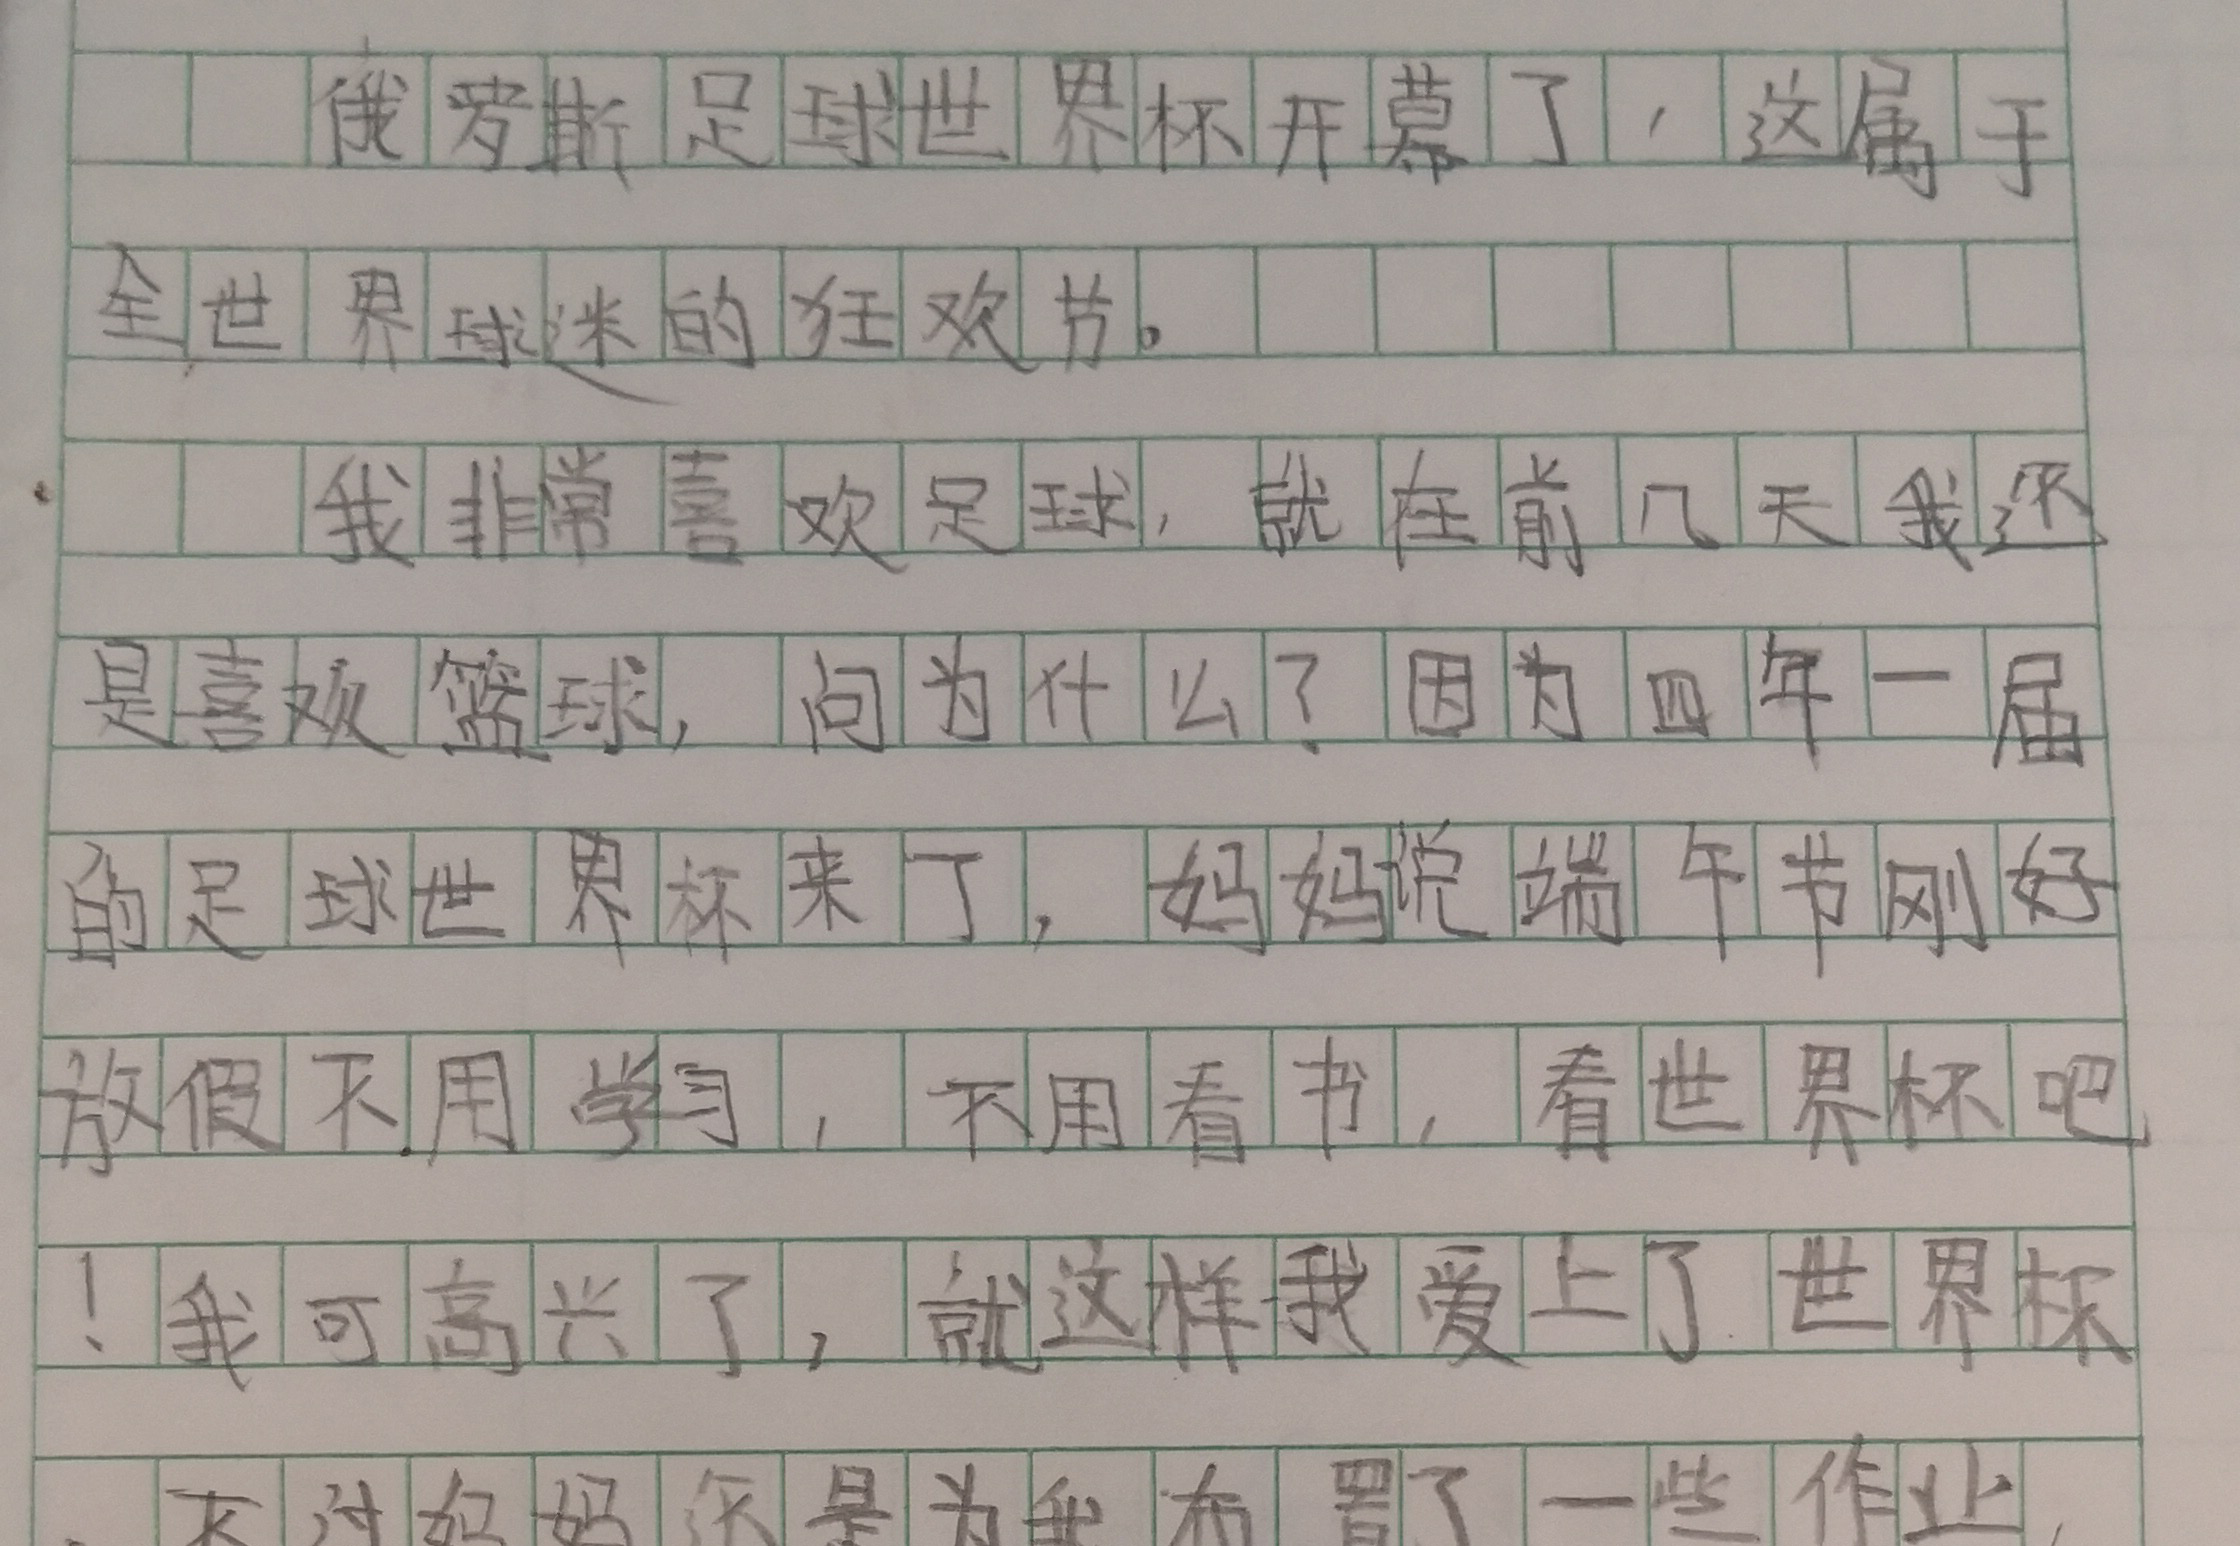 俄罗斯足球世界杯开幕了，这属于
全世界球迷的狂欢节。
我非常喜欢足球，就在前几天我还
是喜欢篮球，问为什么？因为四年一届
的足球世界杯来了，妈妈说端午节刚好
放假不用学习，不用看书，看世界杯吧
！我可高兴了，就这样我爱上了世界杯
。不过妈妈还是为我布置了一些作业，